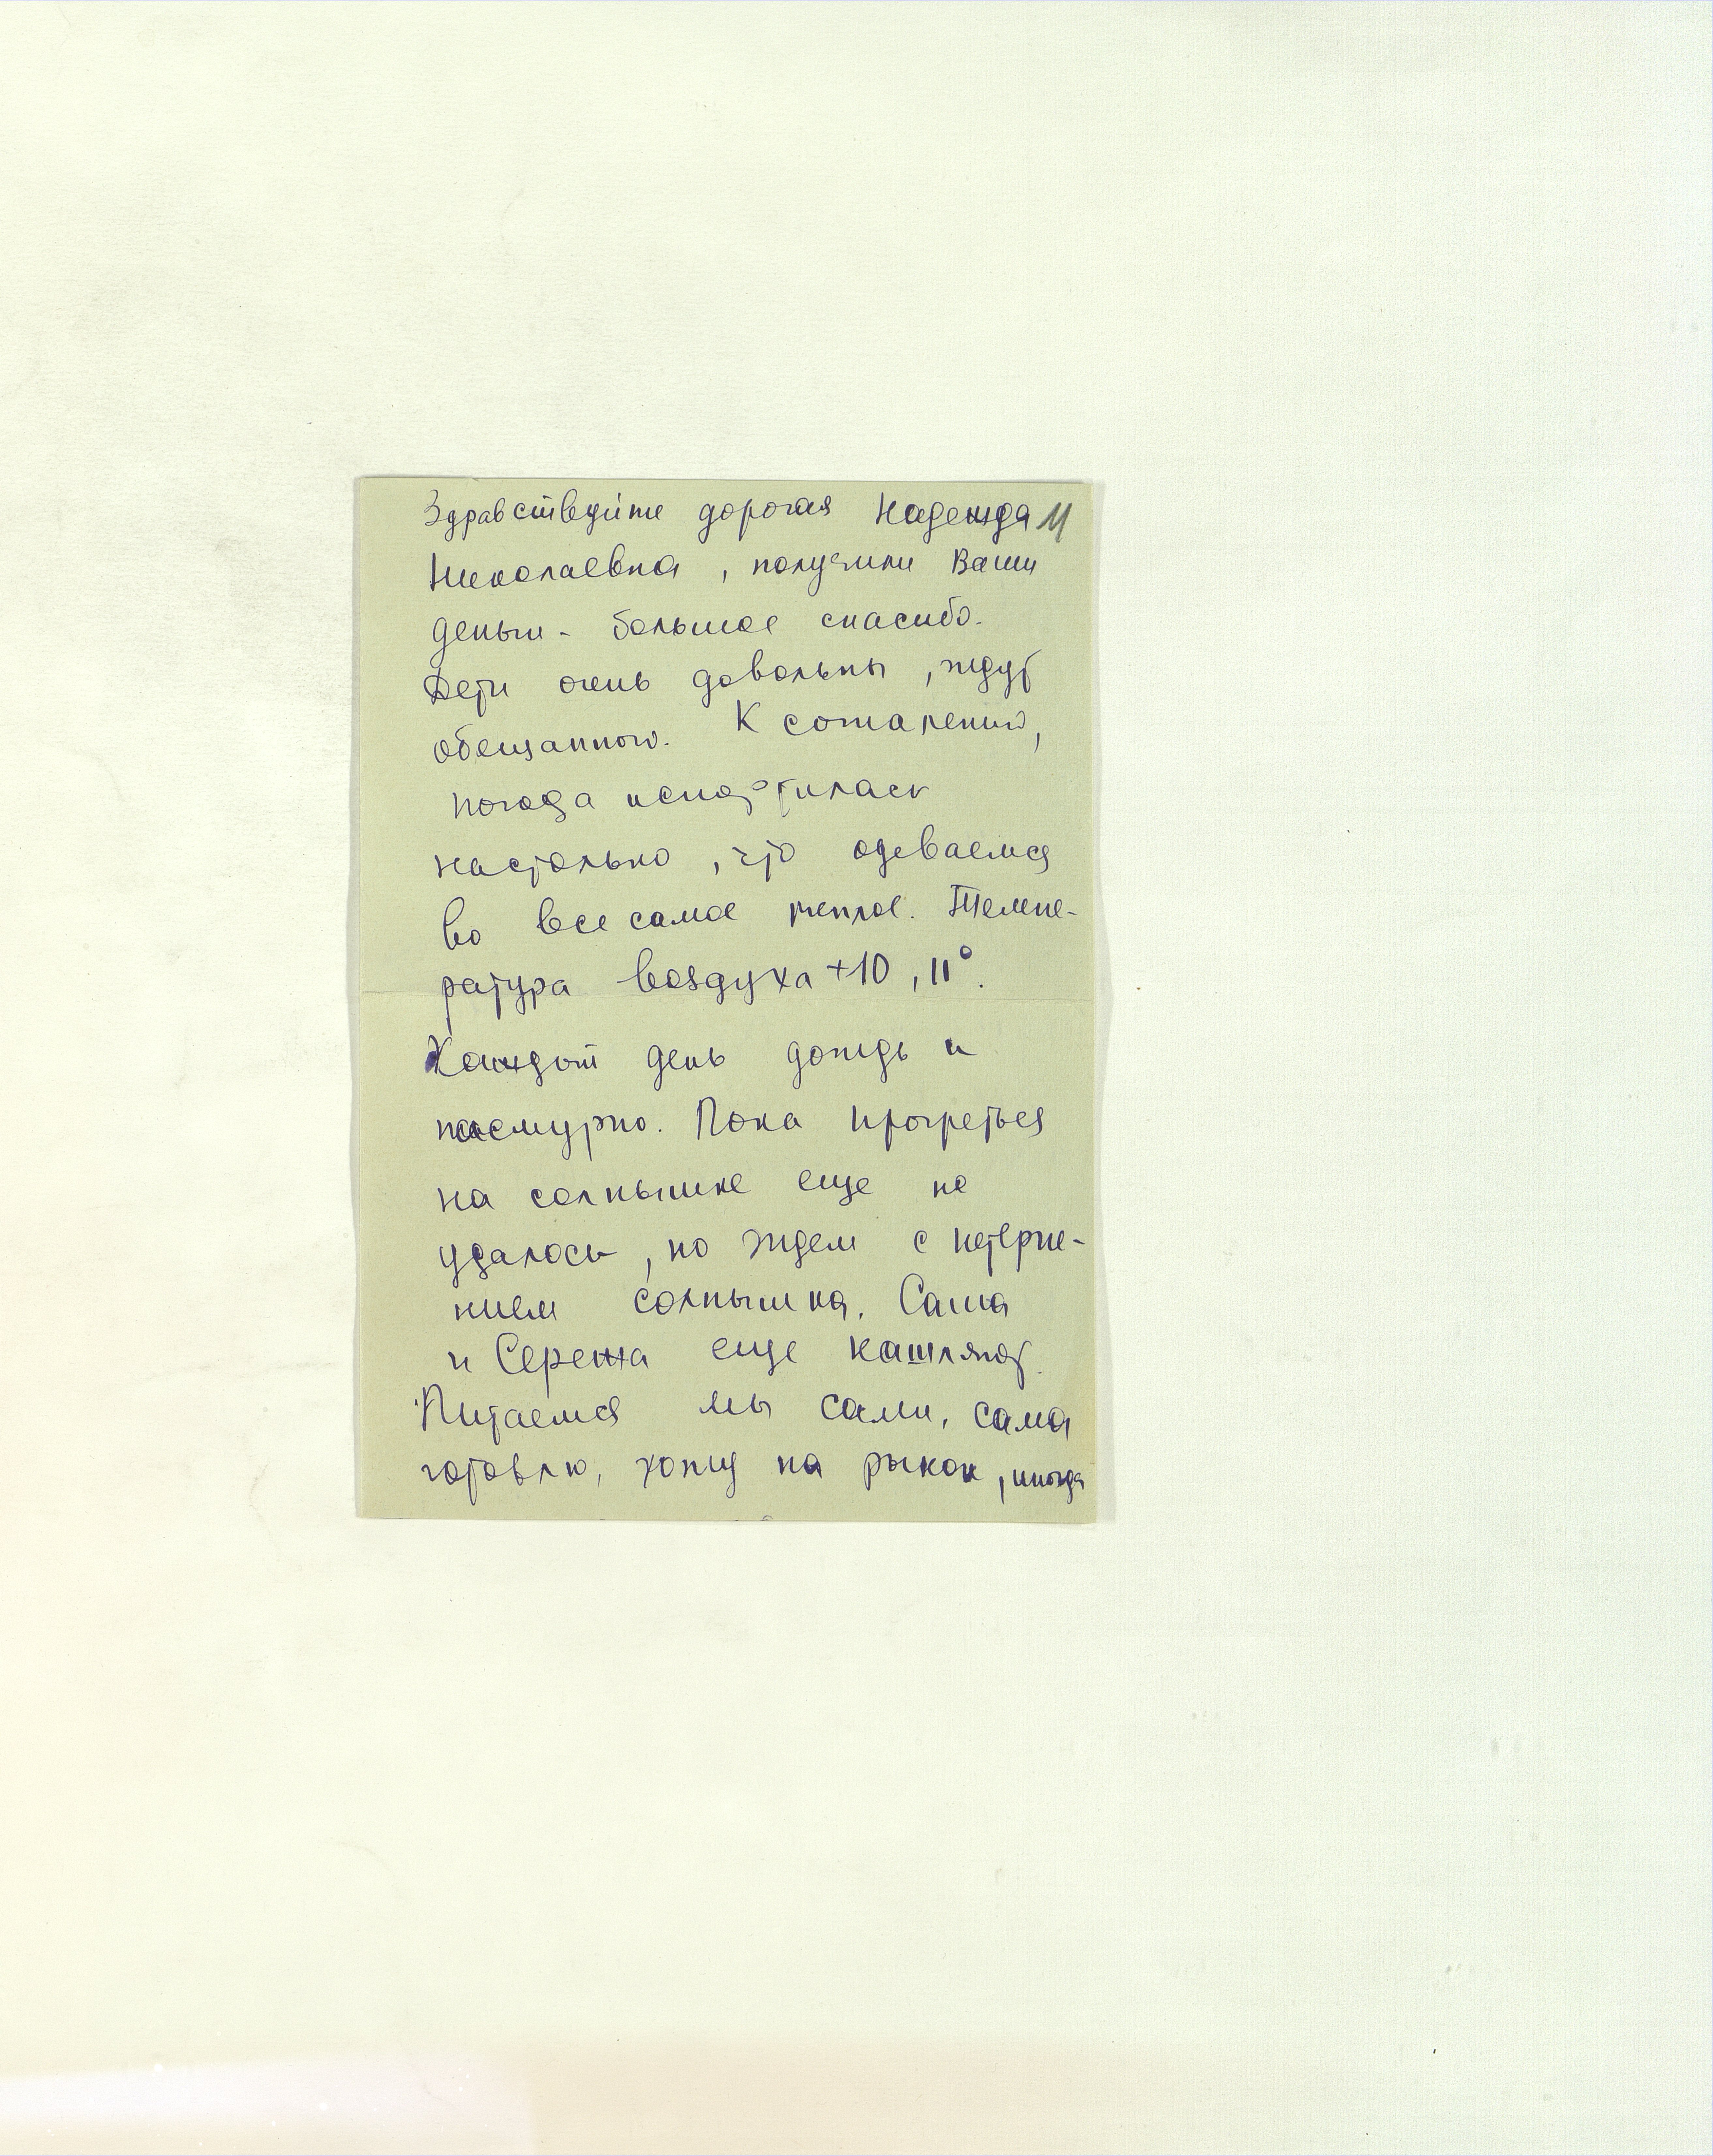 Здравствуйте дорогая Надежда 11
Николаевна, получили Ваши
деньги - большое спасибо.
Дети очень довольны, ждут
обещанного. К сожалению,
погода испортилась
настолько, что одеваемся
во все самое теплое. Темпе-
ратура воздуха +10, 11°.
Каждый день дождь и
пасмурно. Пока прогреться
на солнышке еще не
удалось, но ждем с нетерпе-
нием солнышка. Саша
и Сережа еще кашляют.
Питаемся мы сами, сама
готовлю, хожу на рынок, иногда